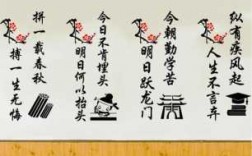 纵有疾风起
人生不言弃
今朝勤学苦
明日跃龙门
今日不肯埋头
明日何以抬头
拼一载春秋
搏一生无悔